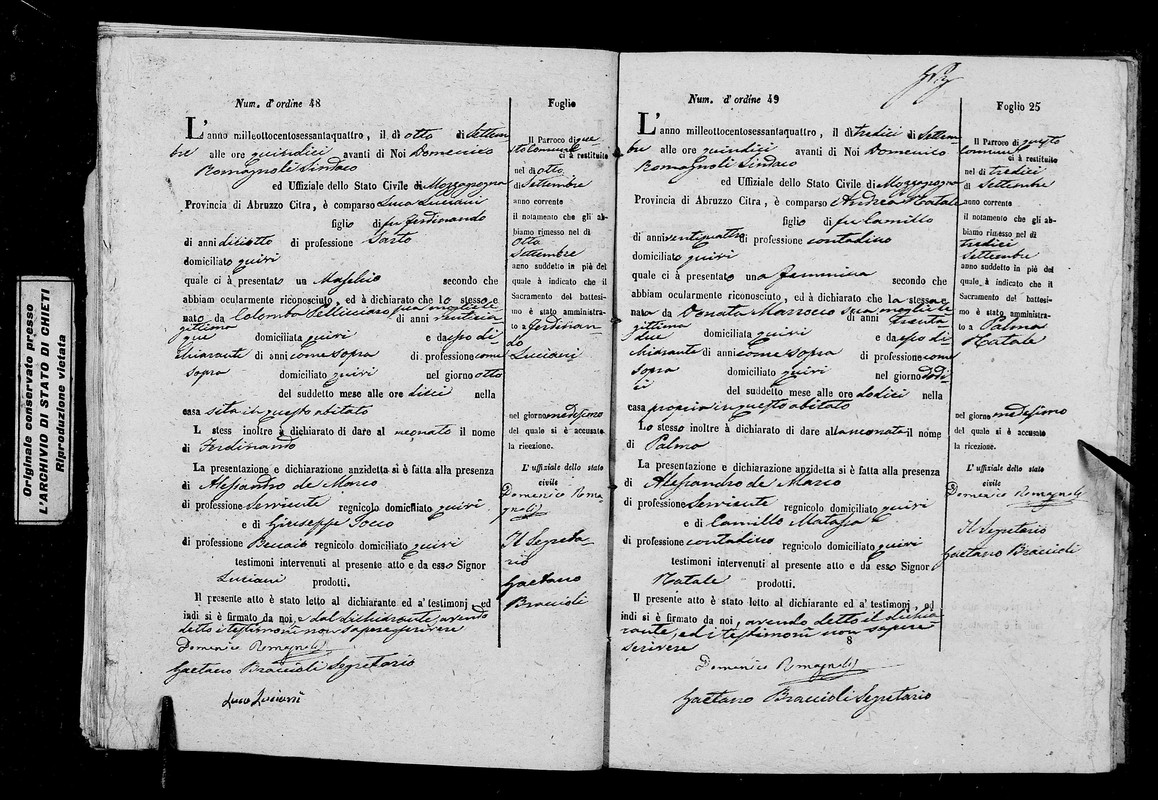 Originale conservato presso
L'ARCHIVIO DI STATO DI CHIETI
Riproduzione vietata
Num. d'ordine 48
L'anno milleottocentosessantaquattro, il dì otto di Settem
bre alle ore quindici avanti di Noi Domenico
Romagnoli Sindaco
ed Uffiziale dello Stato Civile di Mozzagrogna
Provincia di Abruzzo Citra, è comparso Luca Luciani
figlio di fu Ferdinando
di anni diciotto di professione Sarto
domiciliato quivi
quale ci à presentato un Maschio secondo che
abbiam ocularmente riconosciuto, ed à dichiarato che lo stesso e
nato da Colomba Pellicciaro sua moglie le
gittima di anni
que domiciliata quivi e da esso di
chiarante di anni come sopra di professione come
sopra domiciliato quivi nel giorno otto
del suddetto mese alle ore dieci nella
casa sita in questo abitato
L stess inoltre à dichiarato di dare al neonato il nome
di Ferdinando
La presentazione e dichiarazione anzidetta si è fatta alla presenza
di Alessandro de Marco
di professione Serviente regnicolo domiciliato quivi
e di Giuseppe Socco
di professione Beccaio regnicolo domiciliato quivi
testimoni intervenuti al presente atto e da esso Signor
Luciani prodotti.
Il presente atto è stato letto al dichiarante ed a' testimonj, ed
indi si è firmato da noi, e dal dichiarante, avendo
detto i testimoni non sapere scrivere
Domenico Romagnoli
Gaetano Braccioli Segretario
Luca Luciani
Foglio
Il Parroco di que
sto Comune
ci à restituito
nel dì otto
di Settembre
anno corrente
il notamento che gli ab-
biamo rimesso nel dì
otto
Settembre
anno suddetto in piè del
quale à indicato che il
Sacramento del battesi-
mo è stato amministra-
to a Ferdinan
do
Luciani
nel giorno medesimo
del quale si è accusata
la ricezione.
L' uffiziale dello stato
civile
Domenico Roma
gnoli
Il Segreta-
rio
Gaetano
Braccioli
Num. d'ordine 49
L'anno milleottocentosessantaquattro, il dì tredici di Settem
bre alle ore quindici avanti di Noi Domenico
Romagnoli Sindaco
ed Uffiziale dello Stato Civile di Mozzagrogna
Provincia di Abruzzo Citra, è comparso Andrea Natale
figlio di fu Camillo
di anni ventiquattro di professione contadino
domiciliato quivi
quale ci à presentato una femmina secondo che
abbiam ocularmente riconosciuto, ed à dichiarato che la stessa e
nata da Donata Marrocco sua moglie le
gittima di anni trenta
due domiciliata quivi e da esso di
chiarante di anni come sopra di professione come
sopra domiciliato quivi nel giorno dodi
ci
del suddetto mese alle ore dodici nella
casa propria in questo abitato
Lo stesso inoltre à dichiarato di dare alla neonata il nome
di Palma
La presentazione e dichiarazione anzidetta si è fatta alla presenza
di Alessandro de Marco
di professione Serviente regnicolo domiciliato quivi
e di Camillo
di professione contadino regnicolo domiciliato quivi
testimoni intervenuti al presente atto e da esso Signor
Natale prodotti.
Il presente atto è stato letto al dichiarante ed a' testimonj, ed
indi si è firmato da noi, avendo detto il dichia
rante, ed i testimoni non sapere
scrivere
8
Domenico Romagnoli
Gaetano Braccioli Segretario
Foglio 25
Il Parroco di questo
Comune
ci à restituito
nel dì tredici
di Settembre
anno corrente
il notamento che gli ab-
biamo rimesso nel dì
tredici
Settembre
anno suddetto in piè del
quale à indicato che il
Sacramento del battesi-
mo è stato amministra-
to a Palma
Natale
nel giorno medesimo
del quale si è accusata
la ricezione.
L' uffiziale dello stato
civile
Domenico Romagnoli
Il Segretario
Gaetano Braccioli